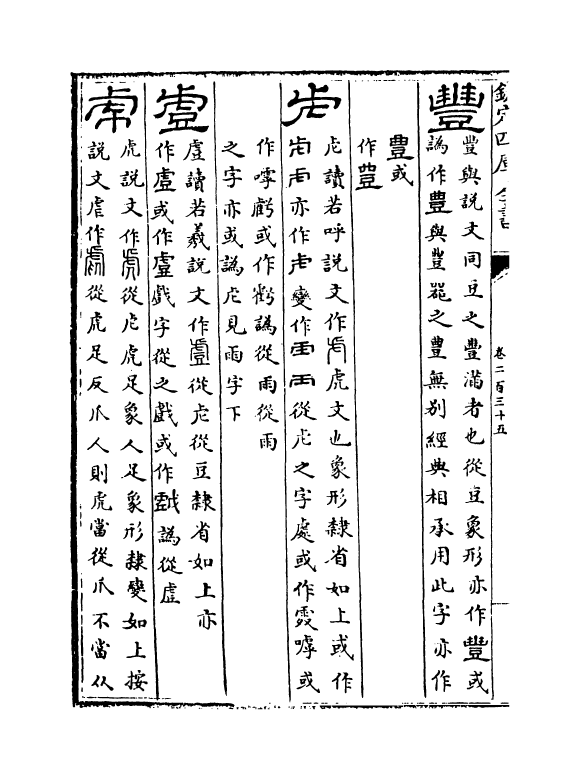 欽定四庫全書
卷二百三十五
豐
豐與說文同豆之豐滿者也從豆象形亦作豐或
譌作豊與豊器之豊無别經典相承用此字亦作
豊或
作豈
虍
虍讀若呼說文作虍虎文也象形隸省如上或作
亦作變作從虍之字處或作䨥嘑或
作嘑虧或作虧譌從雨從雨
之字亦或譌虍見雨字下
䖒
䖒讀若羲說文作䖒從虍從豆隸省如上亦
作䖒或作䖒戲字從之戲或作戱譌從虛
虎
虎說文作虎從虍虎足象人足象形隸變如上按
說文虐作虐從虎足反爪人則虎當從爪不當从